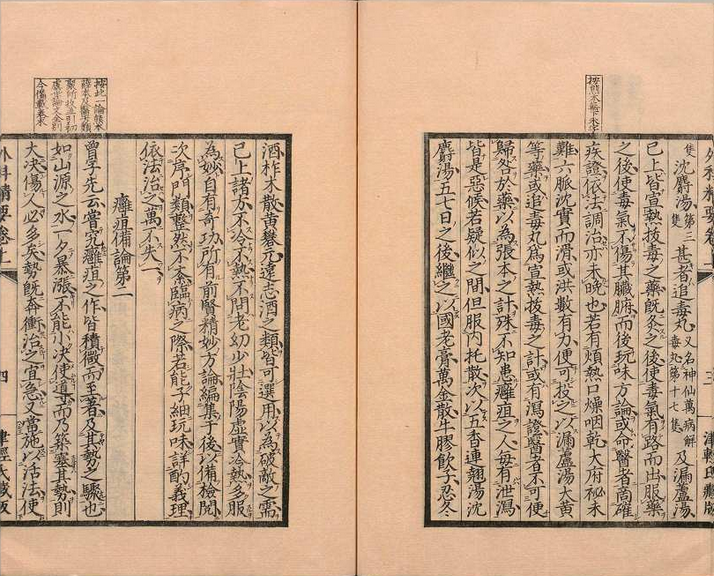 隻
沈麝湯第三隻甚者追毒丸又名神仙萬病解毒丸第十七隻及漏蘆湯
已上皆宣熱拔毒之藥既灸之後使毒氣有路而出服藥
之後使毒氣不傷其臟腑而後玩味方論或命醫者商確
疾證依法調治亦未晚也若有煩熱口燥咽乾大府祕
難六脈沈實而滑或洪數有力便可投之以漏盧湯大黃
等藥或追毒丸爲宣熱拔毒之計或有瀉證醫者不可便
歸咎於藥以為張本之計殊不知患癰疽之人每有泄瀉
皆是惡候若疑似之間但服內托散次以五香連翹湯沈
麝湯五七日之後繼之以國老膏萬金散牛膠飲子忍冬
酒柞木散黃礬元遠志酒之類皆可選用以為破敵之需
已上諸方不冷不熱不問老幼少壯陰陽虛實冷熱多服
為妙自有奇功所有前賢精妙方論編集于後以備檢閱
次序門類整然不紊臨病之際若能子細玩味詳酌義理
依法治之萬不失一
癰疽備論第二
曾孚先云嘗究癰疽之作皆積微而至著及其勢之驟也
如山源之水一夕暴漲不能小決使導而乃築塞其勢則
大決傷人必多矣勢既奔衝治之宜急又當施以活法使
外科精要卷上
四
津輕氏藏版